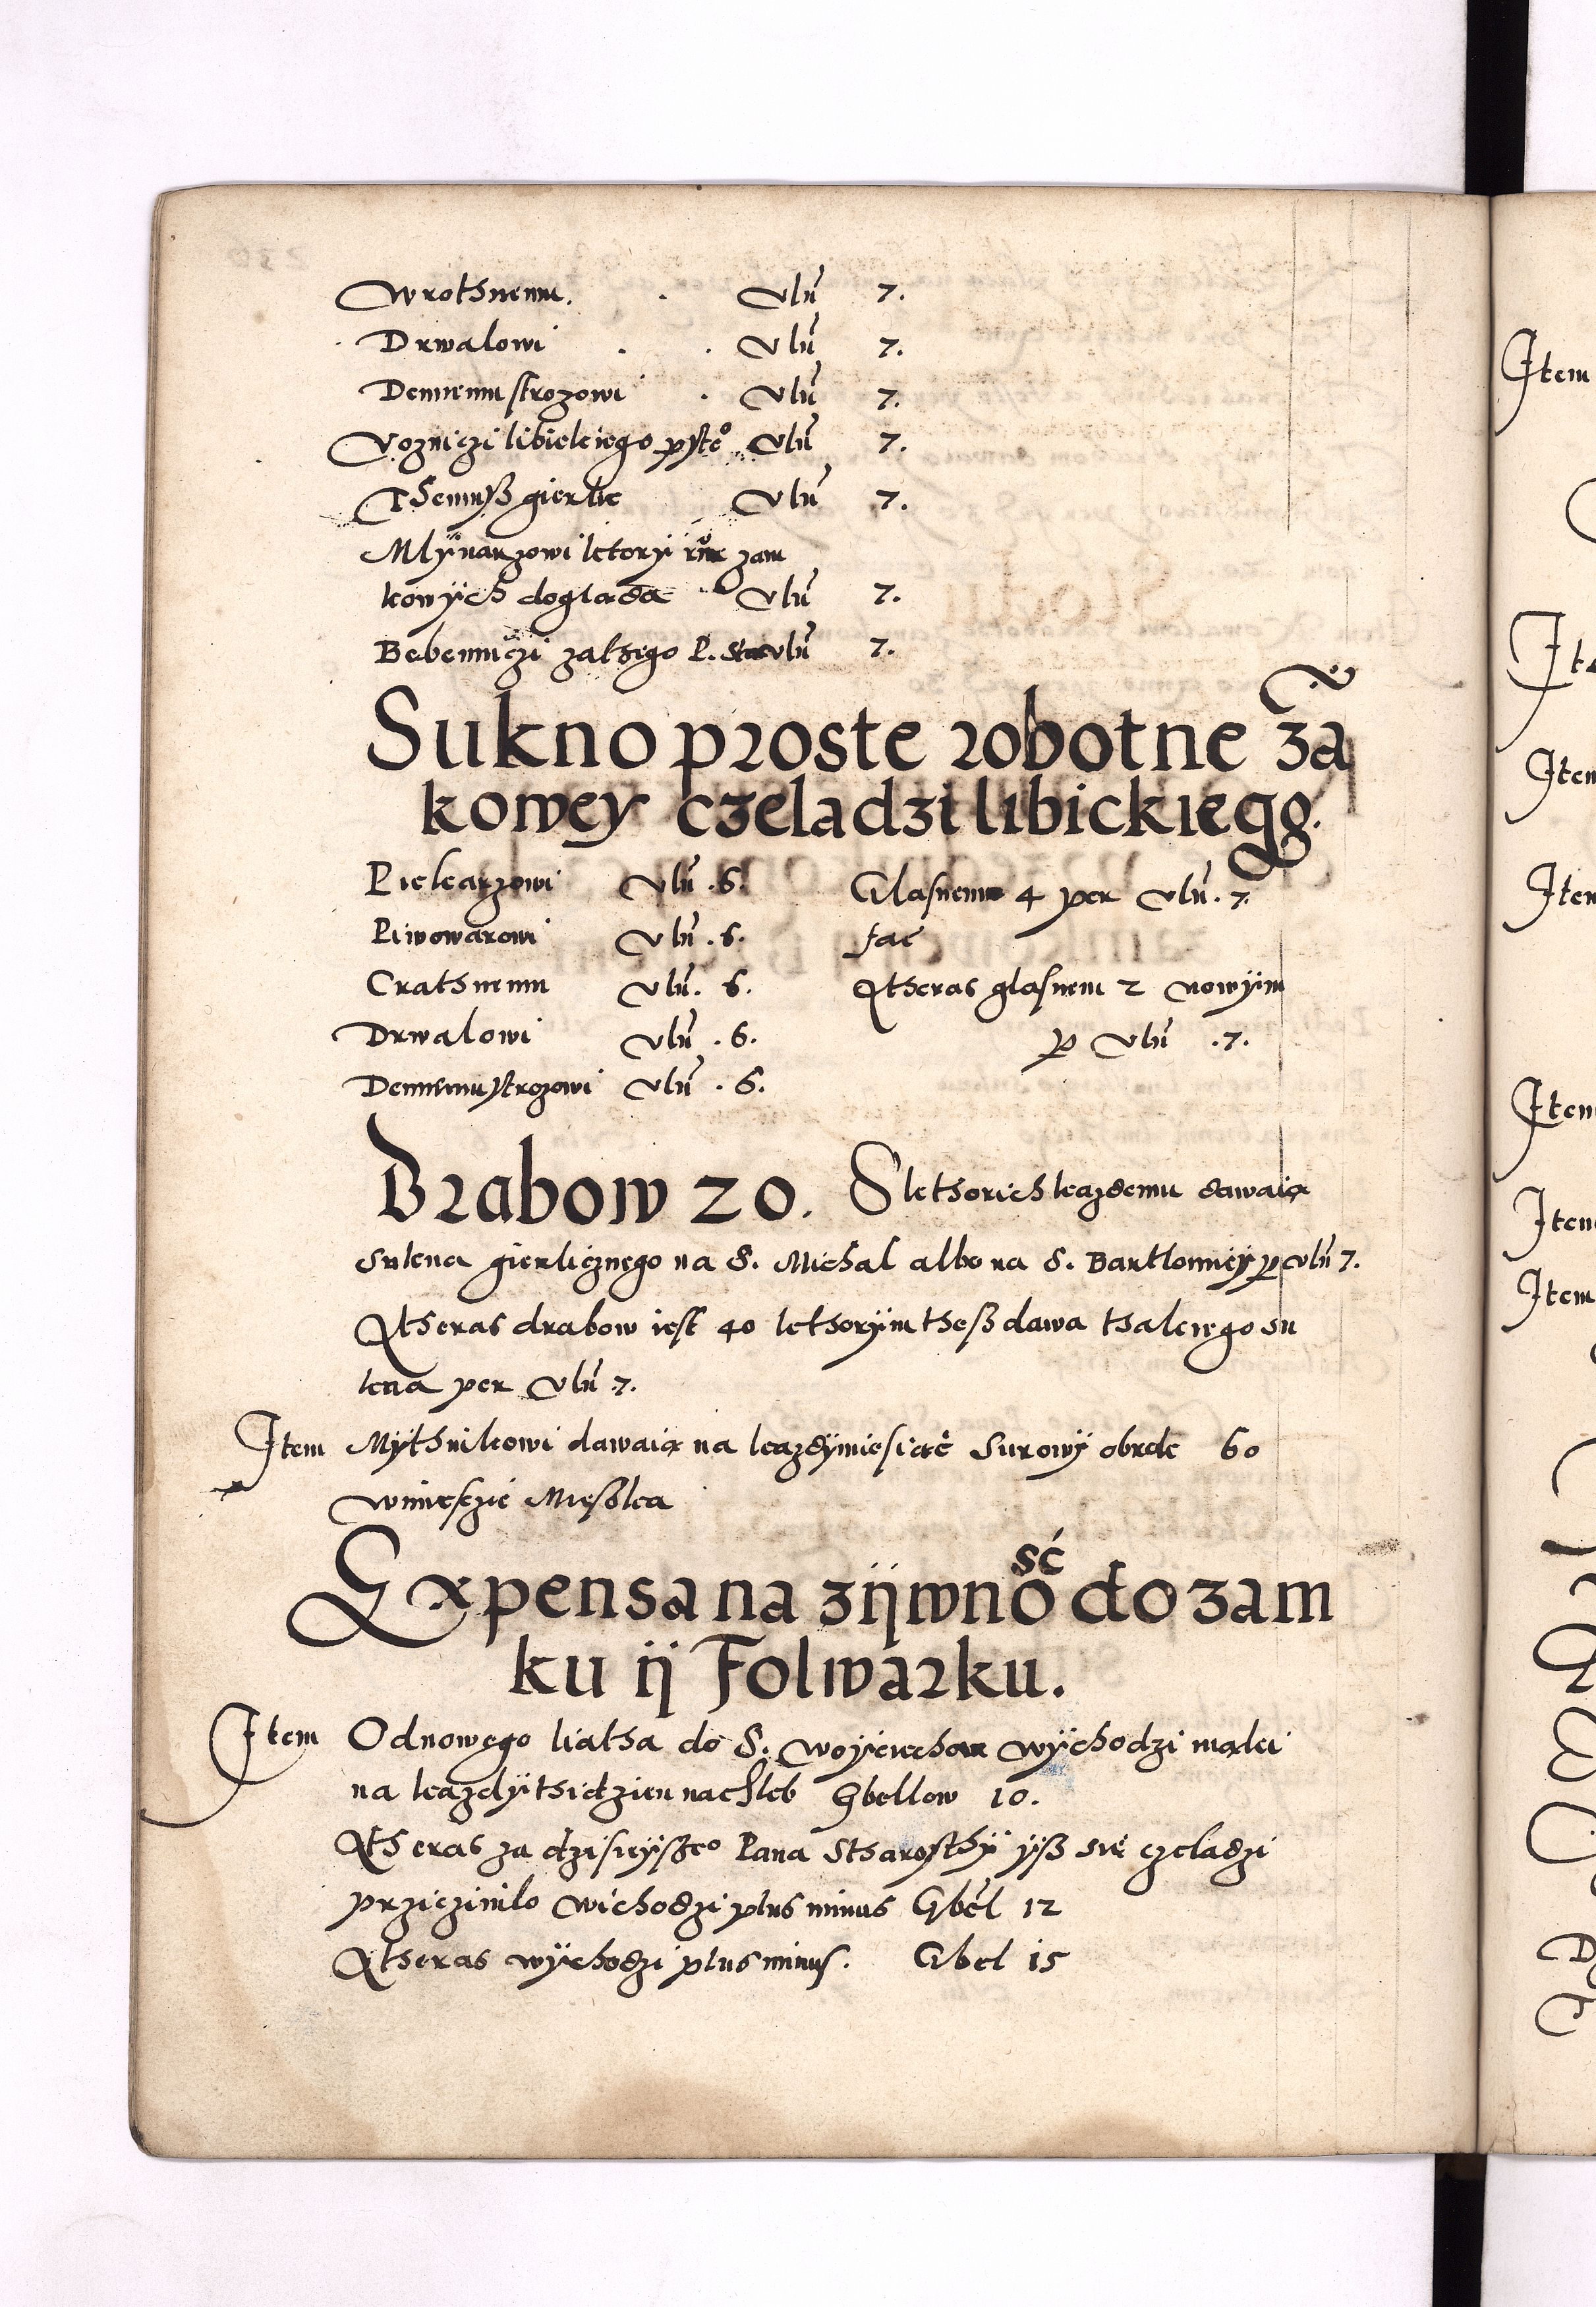 Wrothnemu. . Uln̄ 7.
Drwalowi . . Uln̄ 7.
Dennemu strozowi . Uln̄ 7.
Vozniczi libickiego pyste° Uln̄ 7.
Themuß gierlic Uln̄ 7.
Mlÿnarzowi ktory rur zam
kowÿch doglada Uln̄ 7.
Bebenniczi zatzego P. Star uln̄ 7.
Sukno proste robotne zā
kowey czeladzi libickiego.
Piekarzowi Uln̄ . 6.
Piwowarowi Uln̄ . 6.
Crathnemu Uln̄ . 6.
Drwalowi Uln̄ . 6.
Dennemu strozowi Uln̄ . 6.
Glasnemu 4 per Uln̄ . 7.
fac
Otheras glasnem 2 nowÿm
p Uln̄ . 7.
Drabow 20. S kthorich kazdemu dawaią
sukna gierlicznego na S. Michal albo na S. Bartlomieÿ p uln̄ 7.
Otheras drabow iest 40 kthorÿm theß dawa thakiego su
kna per Uln̄ 7.
Item Mÿthnikowi dawaią na kazdÿ miesiąc surowÿ obrok 60
wmiesczie Miesska
Expensa na zÿwność do zam
ku ÿ Folwarku.
Item Od nowego liatha do S. Woÿciecha wÿchodzi mąki
na kazdÿ thidzien nachleb Gbellow 10.
Otheras za dzisieÿsze° Pana Starosthÿ ÿß sie czeladzi
prziczinilo wichodzi plus minus Gbel 12
Otheras wÿchodzi plus minus. Gbel 15
Item
Item
Item
Item
Item
Item
Item